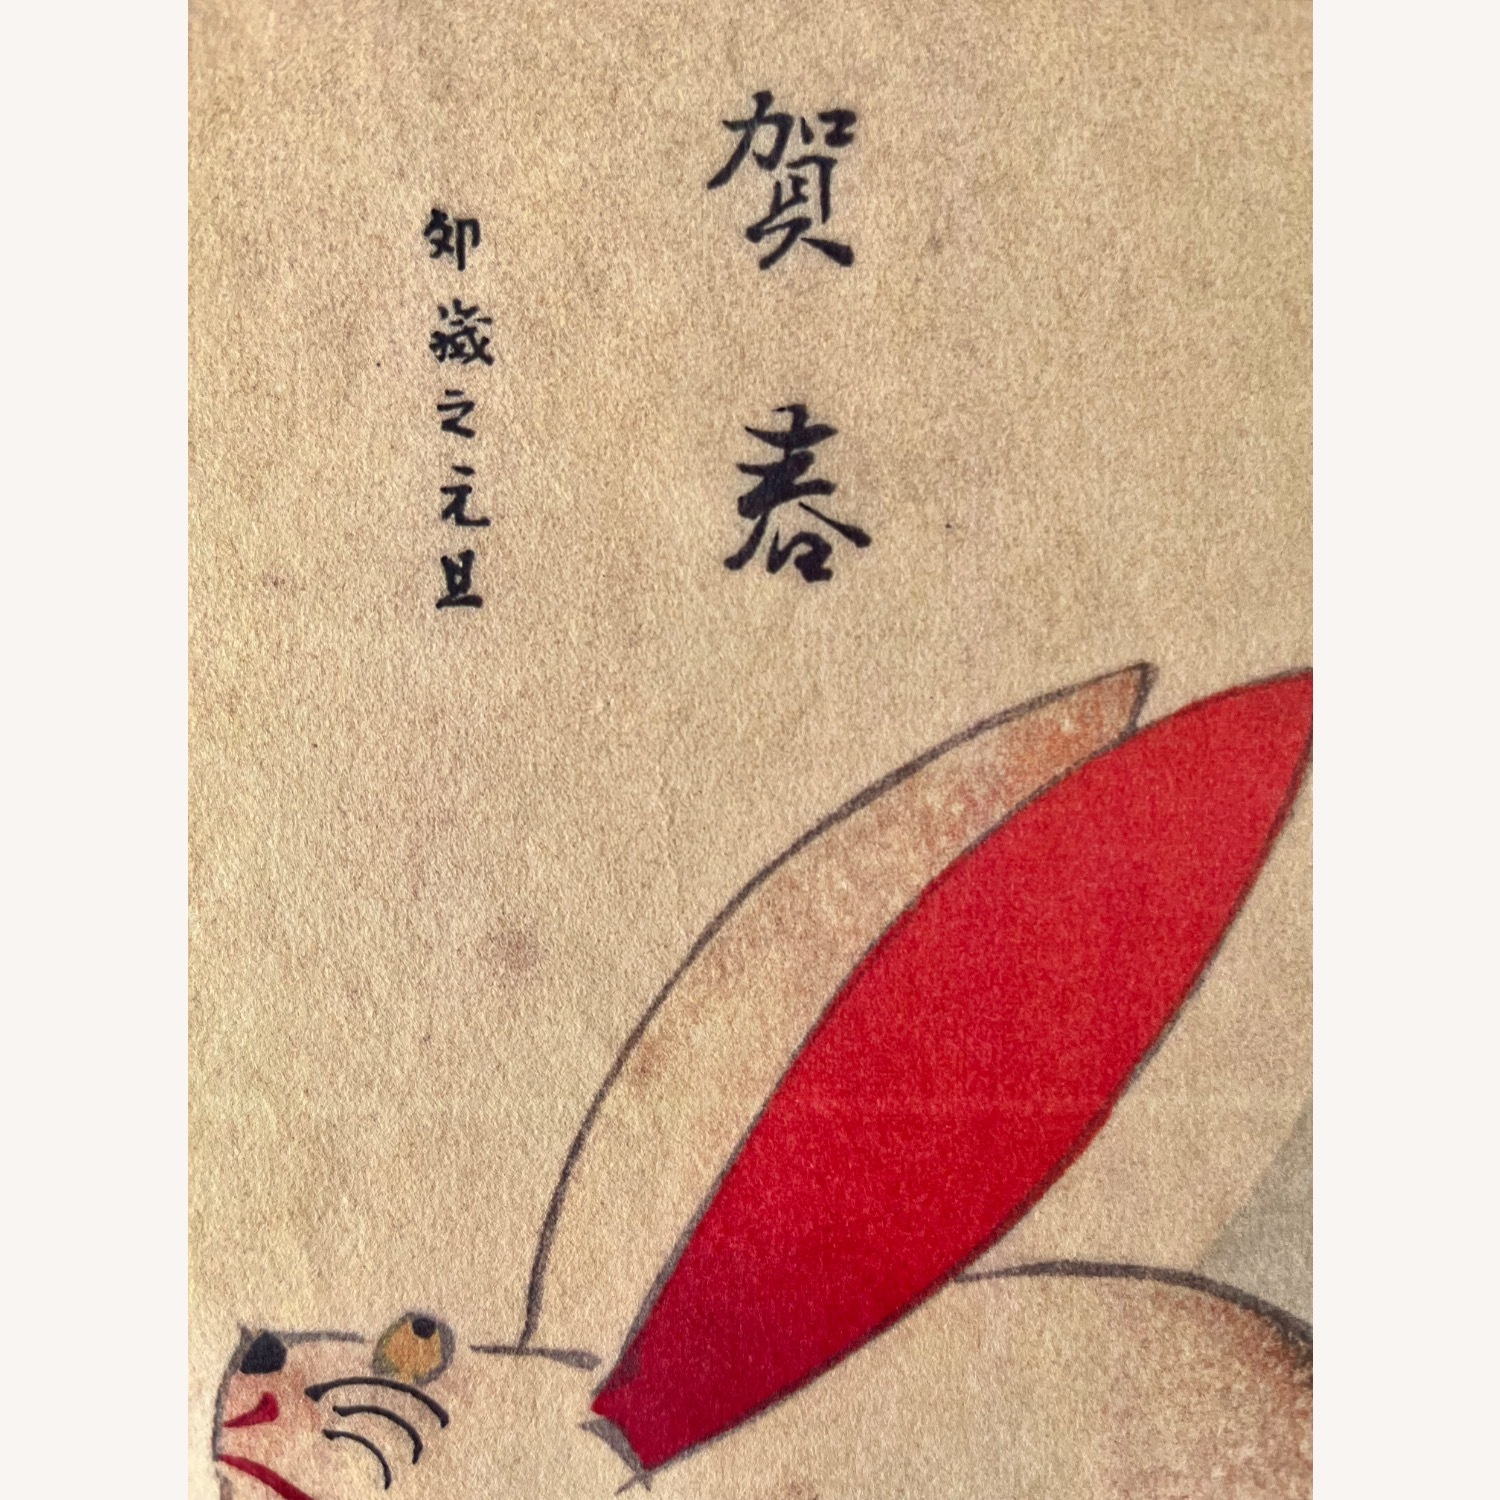 賀春
卯歳之元旦